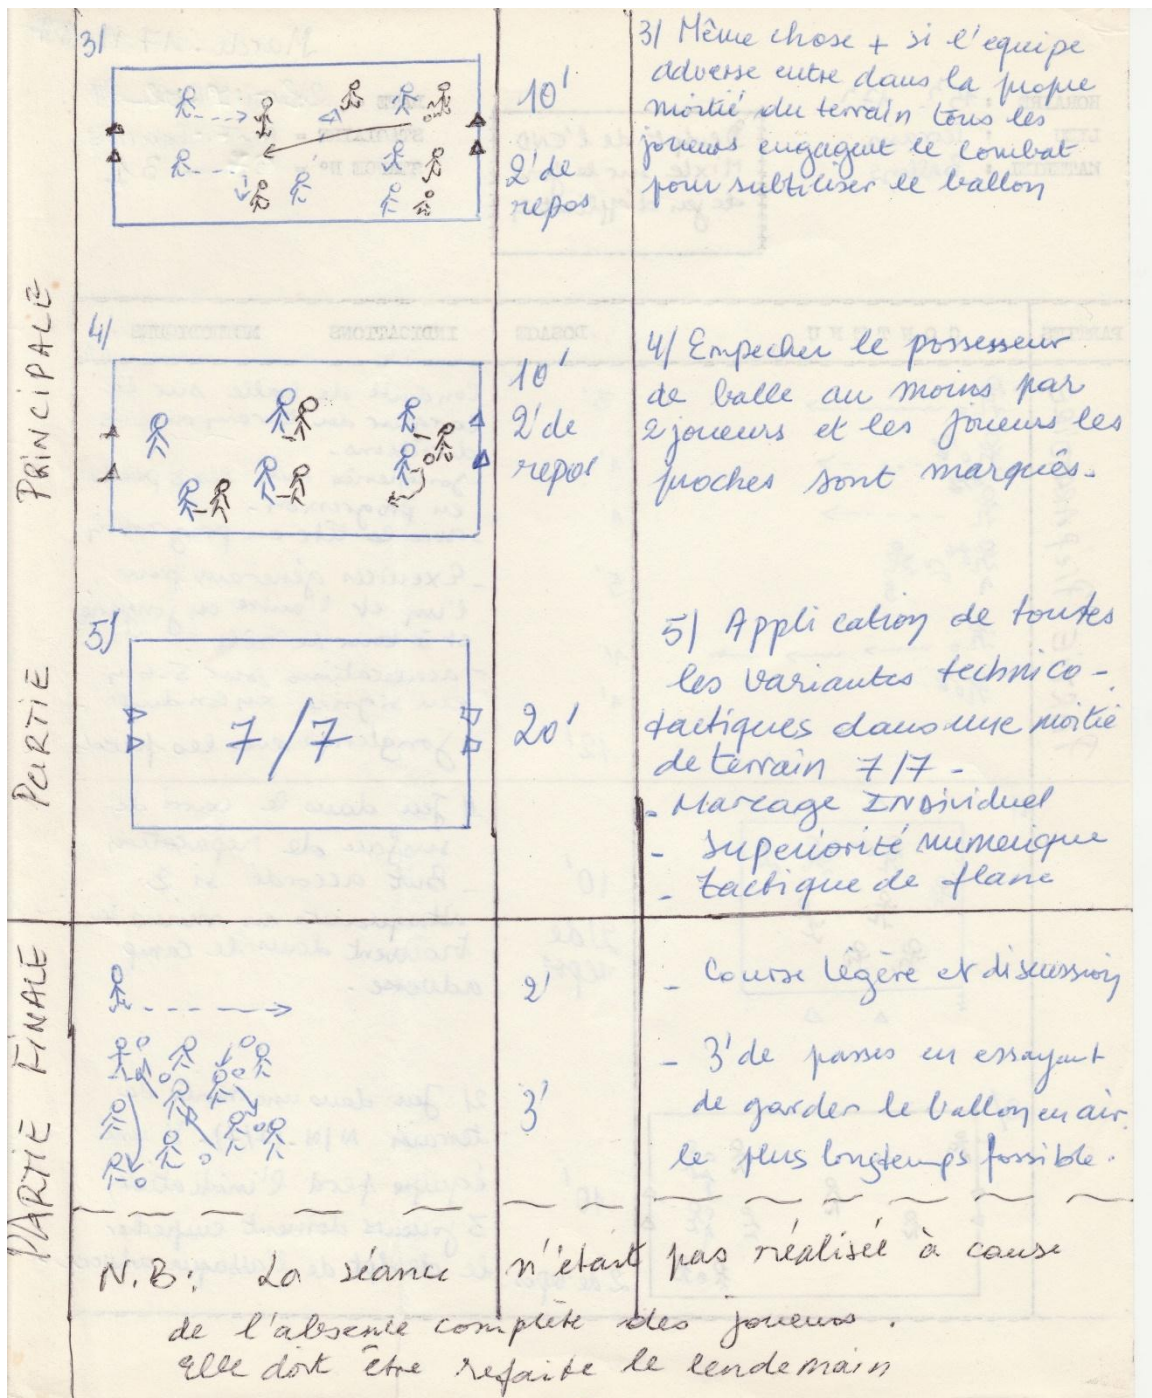 PRINCIPALE
PARTIE
3)
10'
2' de
repos
3) Même chose + si l'equipe
adverse entre dans la propre
moitié du terrain tous les
joueurs engagent le combat
pour subtiliser le ballon
4)
10'
2' de
repos
4) Empecher le possesseur
de balle au moins par
2 joueurs et les joueurs les
proches sont marqués.
5)
7/7
20'
5) Application de toutes
les variantes technico-
tactiques dans une moitié
de terrain 7/7 -
- Marcage INdividuel
- Superiorité numerique
- tactique de flanc
PARTIE FINALE
2'
- Course légère et discussion
3'
- 3' de passes en essayant
de garder le ballon en air
le plus longtemps possible.
N.B: La séance n'était pas réalisée à cause
de l'absence complète des joueurs.
Elle doit être refaite le lendemain